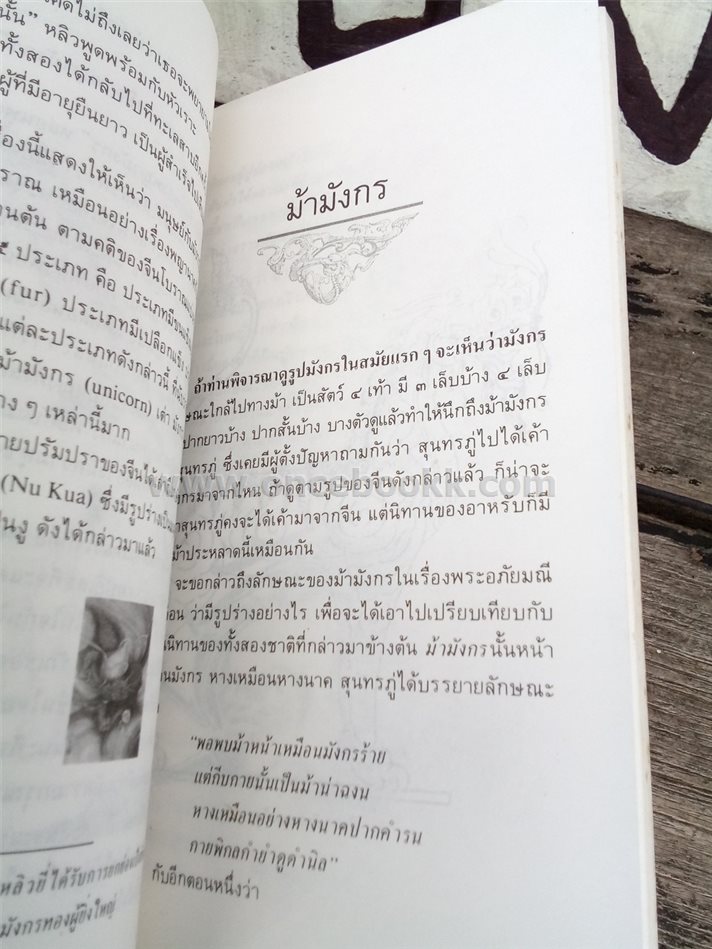 คิดไม่ถึงเลยว่าเธอจะพยา
นั้น” หลิวพูดพร้อมกับหัวเราะ
ทั้งสองได้กลับไปที่ทะเลสาบ
ผู้ที่มีอายุยืนยาว เป็นผู้สำเร็จ
องนี้แสดงให้เห็นว่า มนุษย์กับ
ราณ เหมือนอย่างเรื่องพญา
านต้น ตามคติของจีนโบราณ
๕ ประเภท คือ ประเภทมีขน
(fur) ประเภทมีเปลือกแข็ง
แต่ละประเภทดังกล่าวนี้
ม้ามังกร (unicorn) เต่า
าง ๆ เหล่านี้มาก
ายปรัมปราของจีนได้
(Nu Kua) ซึ่งมีรูปร่างเป็น
ป็นงู ดังได้กล่าวมาแล้ว
หลิวยี่ได้รับการยกย่อง
มังกรทองผู้ยิ่งใหญ่
ม้ามังกร
ถ้าท่านพิจารณาดูรูปมังกรในสมัยแรก ๆ จะเห็นว่ามังกร
ษณะใกล้ไปทางม้า เป็นสัตว์ ๔ เท้า มี ๓ เล็บบ้าง ๔ เล็บ
ปากยาวบ้าง ปากสั้นบ้าง บางตัวดูแล้วทำให้นึกถึงม้ามังกร
สุนทรภู่ ซึ่งเคยมีผู้ตั้งปัญหาถามกันว่า สุนทรภู่ไปได้เค้า
งกรมาจากไหน ถ้าดูตามรูปของจีนดังกล่าวแล้ว ก็น่าจะ
าสุนทรภู่คงจะได้เค้ามาจากจีน แต่นิทานของอาหรับก็มี
ม้าประหลาดนี้เหมือนกัน
จะขอกล่าวถึงลักษณะของม้ามังกรในเรื่องพระอภัยมณี
อน ว่ามีรูปร่างอย่างไร เพื่อจะได้เอาไปเปรียบเทียบกับ
นิทานของทั้งสองชาติที่กล่าวมาข้างต้น ม้ามังกรนั้นหน้า
อนมังกร หางเหมือนหางนาค สุนทรภู่ได้บรรยายลักษณะ
“พอพบม้าหน้าเหมือนมังกรร้าย
แต่กีบกายนั้นเป็นม้าน่าฉงน
หางเหมือนอย่างหางนาคปากคำรน
กายพิกลกำยำดูดำนิล”
กับอีกตอนหนึ่งว่า